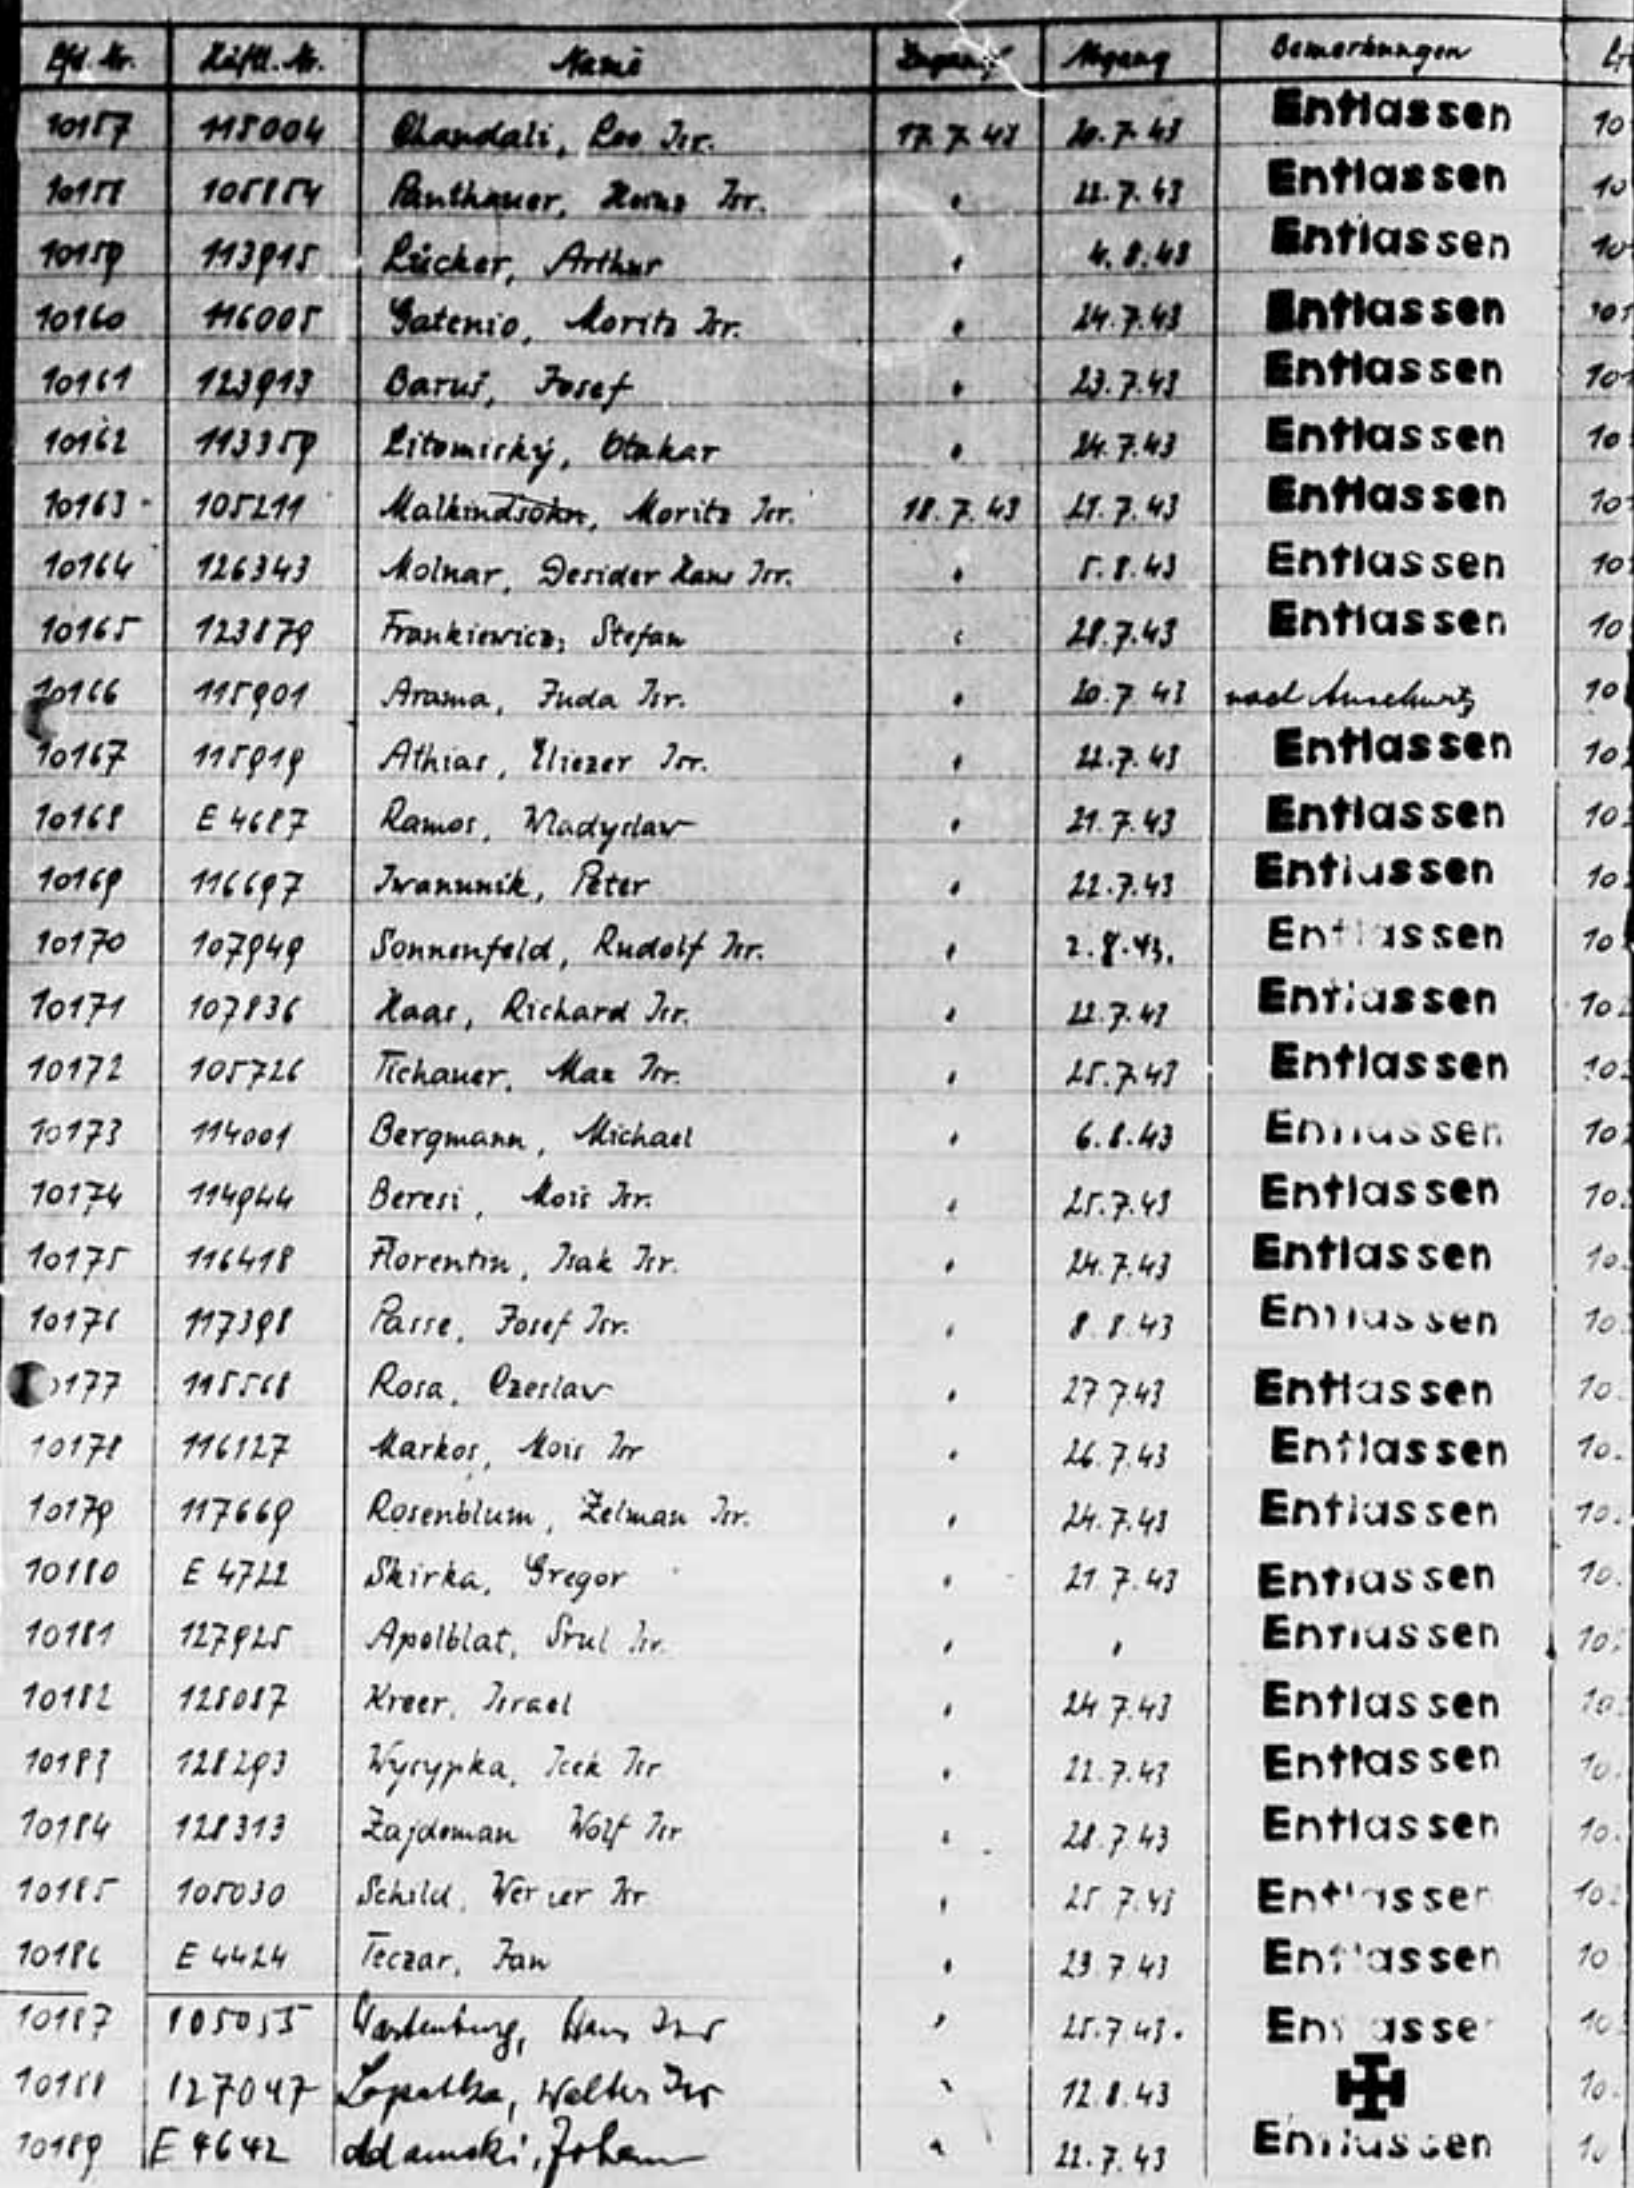 Lfd. Nr. Häftl. Nr. Name Zugang Abgang Bemerkungen
10157 115004 Leo Isr. 17.7.43 20.7.43 Entlassen 10
10158 105854 Panthauer, Heinz Isr. " 22.7.43 Entlassen 10
10159 113915 Lücker, Arthur " 4.8.43 Entlassen 10
10160 116005 Gatenio, Moritz Isr. " 24.7.43 Entlassen 10
10161 123913 Baruš, Josef " 23.7.43 Entlassen 10
10162 113359 Litomiský, Otakar " 24.7.43 Entlassen 10
10163 105211 Malkindsohn, Moritz Isr. 18.7.43 21.7.43 Entlassen 10
10164 126343 Molnar, Desider Hans Isr. " 5.8.43 Entlassen 10
10165 123879 Frankiewicz, Stefan " 28.7.43 Entlassen 10
10166 115901 Arama, Juda Isr. " 20.7.43 nach Auschwitz 10
10167 115919 Athias, Eliezer Isr. " 22.7.43 Entlassen 10
10168 E 4687 Ramos, Wladyslaw " 21.7.43 Entlassen 10
10169 116697 Iwanunik, Peter " 22.7.43 Entlassen 10
10170 107949 Sonnenfeld, Rudolf Isr. " 2.8.43. Entlassen 10
10171 107836 Haas, Richard Isr. " 22.7.43 Entlassen 10
10172 105726 Tichauer, Max Isr. " 25.7.43 Entlassen 10
10173 114001 Bergmann, Michael " 6.8.43 Entlassen 10
10174 114944 Beresi, Mois Isr. " 25.7.43 Entlassen 10
10175 116418 Florentin, Isak Isr. " 24.7.43 Entlassen 10
10176 117398 Passe, Josef Isr. " 8.8.43 Entlassen 10
0177 115568 Rosa, Czeslaw " 27.7.43 Entlassen 10
10178 116127 Markos, Mois Isr " 26.7.43 Entlassen 10
10179 117669 Rosenblum, Zelman Isr. " 24.7.43 Entlassen 10
10180 E 4722 Skirka, Gregor " 21.7.43 Entlassen 10
10181 127925 Apelblat, Srul Isr. " " Entlassen 10
10182 128087 Kreer, Israel " 24.7.43 Entlassen 10
10183 128293 Wysypka, Icek Isr " 22.7.43 Entlassen 10
10184 128313 Zajdeman Wolf Isr " 28.7.43 Entlassen 10
10185 105030 Schild, Werner Isr. " 25.7.43 Entlassen 10
10186 E 4424 Teczar, Jan " 23.7.43 Entlassen 10
10187 105055 Wartenburg, Hans Isr " 25.7.43. Entlassen 10
10188 127047 Lopatka, Walter Isr " 12.8.43 10
10189 E 4642 Adamski, Johann " 22.7.43 Entlassen 10